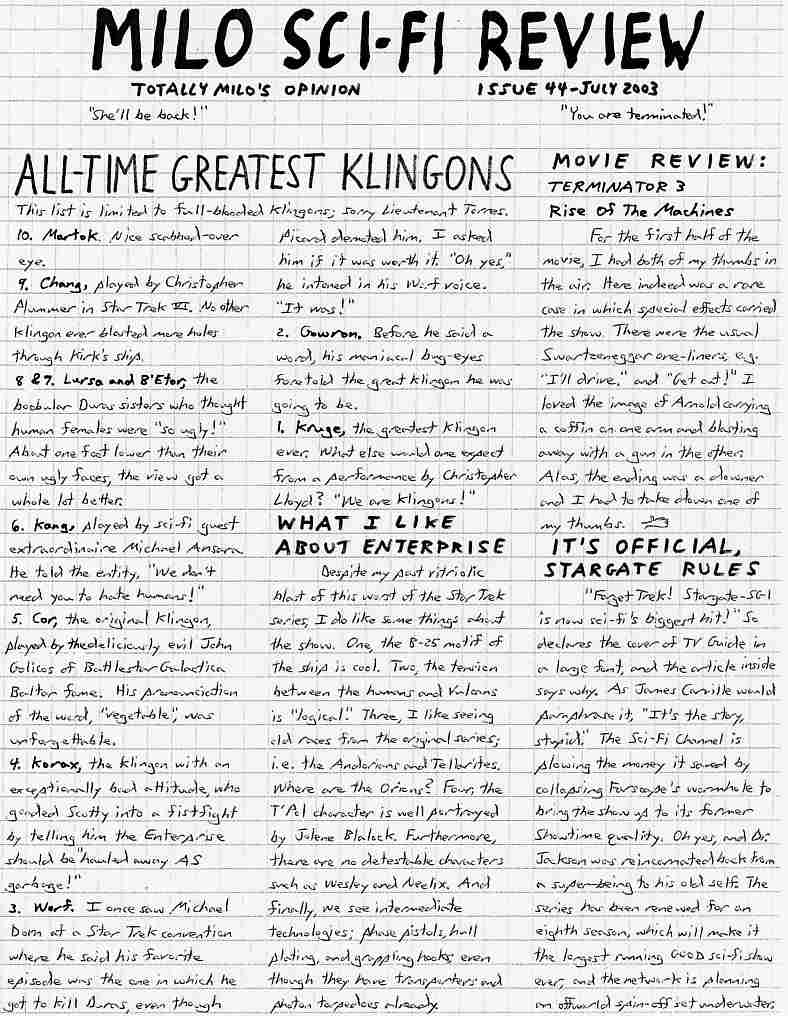 MILO SCI-FI REVIEW
TOTALLY MILO'S OPINION
ISSUE 44-JULY 2003
"She'll be back!"
"You are terminated!"
ALL-TIME GREATEST KLINGONS
This list is limited to full-blooded Klingons; sorry Lieutenant Torres.
10. Martok. Nice scabbed-over
eye.
9. Chang, played by Christopher
Plummer in Star Trek VI. No other
Klingon ever blasted more holes
through Kirk's ship.
8 & 7. Lursa and B'Etor, the
boobular Duras sisters who thought
human females were "so ugly!"
About one foot lower than their
own ugly faces, the view got a
whole lot better.
6. Kang, played by sci-fi guest
extraordinaire Michael Ansara.
He told the entity, "We don't
need you to hate humans!"
5. Cor, the original Klingon,
played by the deliciously evil John
Colicos of Battlestar Galactica
Baltar fame. His pronunciation
of the word, "vegetable", was
unforgettable.
4. Korax, the Klingon with an
exceptionally bad attitude, who
goaded Scotty into a fistfight
by telling him the Enterprise
should be "hauled away AS
garbage!"
3. Worf. I once saw Michael
Dorn at a Star Trek convention
where he said his favorite
episode was the one in which he
got to kill Duras, even though
Picard demoted him. I asked
him if it was worth it. "Oh yes,"
he intoned in his Worf voice.
"It was!"
2. Gowron. Before he said a
word, his maniacal bug-eyes
foretold the great Klingon he was
going to be.
1. Kruge, the greatest Klingon
ever. What else would one expect
from a performance by Christopher
Lloyd? "We are Klingons!"
WHAT I LIKE
ABOUT ENTERPRISE
Despite my past vitriolic
blast of this worst of the Star Trek
series, I do like some things about
the show. One, the B-25 motif of
the ship is cool. Two, the tension
between the humans and Vulcans
is "logical." Three, I like seeing
old races from the original series;
i.e. the Andorians and Tellarites.
Where are the Orions? Four, the
T'Pol character is well portrayed
by Jolene Blalock. Furthermore,
there are no detestable characters
such as Wesley and Neelix. And
finally, we see intermediate
technologies; phase pistols, hull
plating, and grappling hooks, even
though they have transporters and
photon torpedoes already.
MOVIE REVIEW:
TERMINATOR 3
Rise Of The Machines
For the first half of the
movie, I had both of my thumbs in
the air. Here indeed was a rare
case in which special effects carried
the show. There were the usual
Swartzeneggar one-liners, e.g.
"I'll drive," and "Get out!" I
loved the image of Arnold carrying
a coffin on one arm and blasting
away with a gun in the other.
Alas, the ending was a downer
and I had to take down one of
my thumbs.
IT'S OFFICIAL,
STARGATE RULES
"Forget Trek! Stargate-SG-1
is now sci-fi's biggest hit!" So
declares the cover of TV Guide in
a large font, and the article inside
says why. As James Carville would
paraphrase it, "It's the story,
stupid." The Sci-Fi Channel is
plowing the money it saved by
collapsing Farscape's wormhole to
bring the show up to its former
Showtime quality. Oh yes, and Dr.
Jackson was reincarnated back from
a super-being to his old self. The
series has been renewed for an
eighth season, which will make it
the longest running GOOD sci-fi show
ever, and the network is planning
an offworld spin-off set underwater.